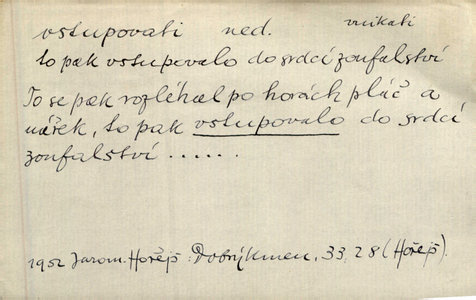 vstupovati ned. vnikati
to pak vstupovalo do srdcí zoufalství
To se pak rozléhal po horách pláč a
nářek, to pak vstupovalo do srdcí
zoufalství ......
1952 Jarom. Hořejš: Dobrý kmen, 33, 28 (Hořejš).